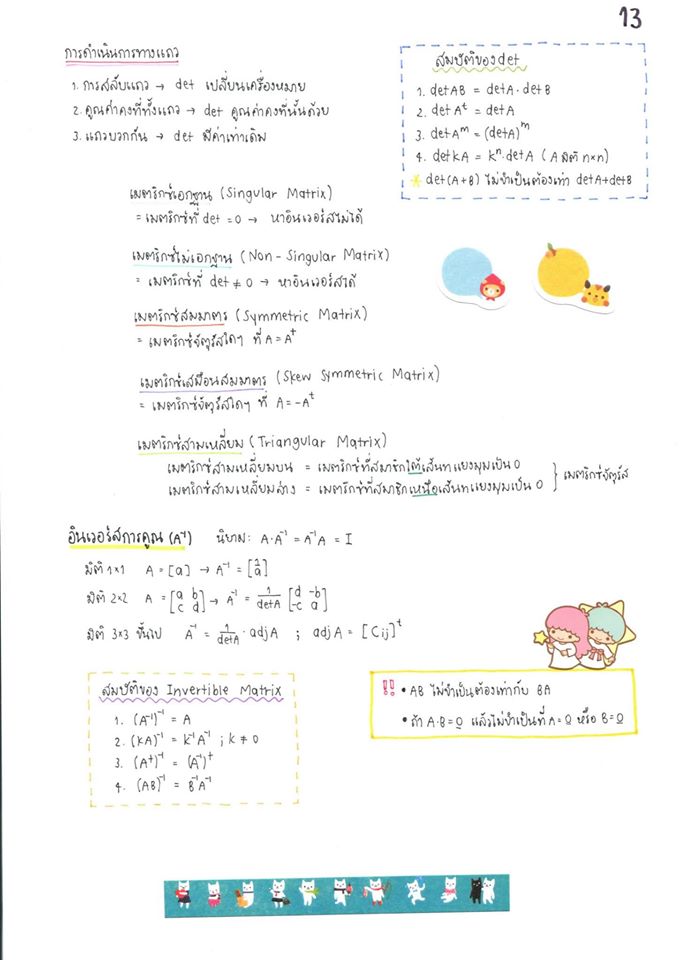 13
การดำเนินการทางแถว
1. การสลับแถว → det เปลี่ยนเครื่องหมาย
2. คูณค่าคงที่ทั้งแถว → det คูณค่าคงที่นั้นด้วย
3. แถวบวกกัน → det มีค่าเท่าเดิม
สมบัติของ det
1. det AB = det A · det B
2. det Aᵗ = det A
3. det Aᵐ = (det A)ᵐ
4. det kA = kⁿ · det A (A มิติ n×n)
* det (A+B) ไม่จำเป็นต้องเท่า det A + det B
เมตริกซ์เอกฐาน (Singular Matrix)
= เมตริกซ์ที่ det = 0 → หาอินเวอร์สไม่ได้
เมตริกซ์ไม่เอกฐาน (Non - Singular Matrix)
= เมตริกซ์ที่ det ≠ 0 → หาอินเวอร์สได้
เมตริกซ์สมมาตร (Symmetric Matrix)
= เมตริกซ์จัตุรัสใดๆ ที่ A = Aᵗ
เมตริกซ์เสมือนสมมาตร (Skew Symmetric Matrix)
= เมตริกซ์จัตุรัสใดๆ ที่ A = -Aᵗ
เมตริกซ์สามเหลี่ยม (Triangular Matrix)
เมตริกซ์สามเหลี่ยมบน = เมตริกซ์ที่สมาชิกใต้เส้นทแยงมุมเป็น 0
เมตริกซ์สามเหลี่ยมล่าง = เมตริกซ์ที่สมาชิกเหนือเส้นทแยงมุมเป็น 0 } เมตริกซ์จัตุรัส
อินเวอร์สการคูณ (A⁻¹) นิยาม: A·A⁻¹ = A⁻¹A = I
มิติ 1×1 A = [a] → A⁻¹ = [1/a]
มิติ 2×2 A = [a b; c d] → A⁻¹ = 1/det A [d -b; -c a]
มิติ 3×3 ขึ้นไป A⁻¹ = 1/det A · adj A ; adj A = [Cij]ᵗ
สมบัติของ Invertible Matrix
1. (A⁻¹)⁻¹ = A
2. (kA)⁻¹ = k⁻¹A⁻¹ ; k ≠ 0
3. (Aᵗ)⁻¹ = (A⁻¹)ᵗ
4. (AB)⁻¹ = B⁻¹A⁻¹
!! • AB ไม่จำเป็นต้องเท่ากับ BA
• ถ้า A·B = 0 แล้วไม่จำเป็นที่ A = 0 หรือ B = 0